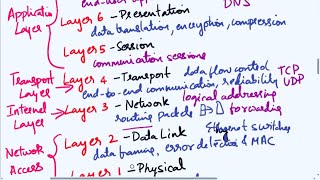 end-user app DNS
Application Layer 6 - Presentation
Layer data translation, encryption, compression
Layer 5 - Session
communication sessions
Transport Layer 4 - Transport data flow control TCP
Layer end-to-end communication, reliability UDP
Internet Layer 3 - Network logical addressing
Layer routing packets forwarding
Layer 2 - Data Link Ethernet switches
Network data framing, error detection & MAC
Access Layer 1 - Physical